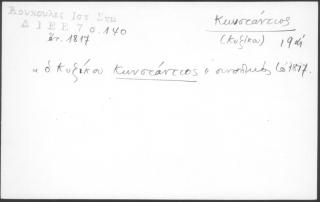 Κουκουλες Ιστ Σημ
ΔΙΕΕ 7 σ.140
ἔτ. 1817
Κωνστάντιος
(Κυζίκου)
« ὁ Κυζίκου Κωνστάντιος ὁ συνοδικός (ἐ) 1817.